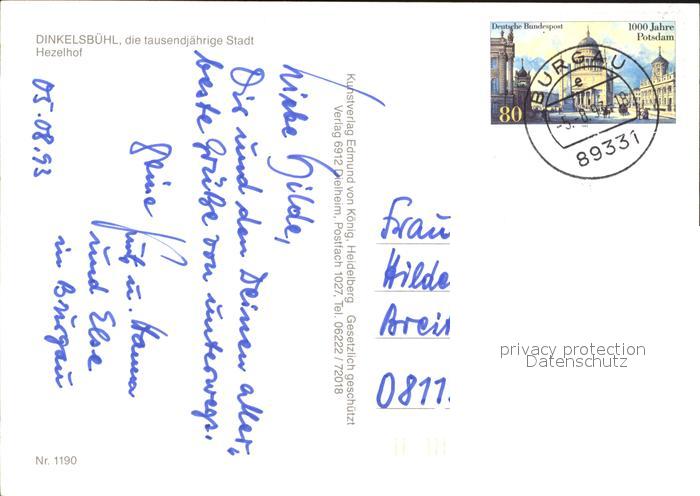 DINKELSBÜHL, die tausendjährige Stadt
Hezelhof
Deutsche Bundespost
1000 Jahre
Potsdam
80
BURGAU
e
89331
05.08.93
Liebe Hilde,
Dir und den Deinen aller-
beste Grüße von unterwegs.
Deine
u. Hanna
und Else
in Burgau
Kunstverlag Edmund von König, Heidelberg Gesetzlich geschützt
Verlag 6912 Dielheim, Postfach 1027, Tel. 06222 / 72018
Frau
Hilde
0811
privacy protection
Datenschutz
Nr. 1190